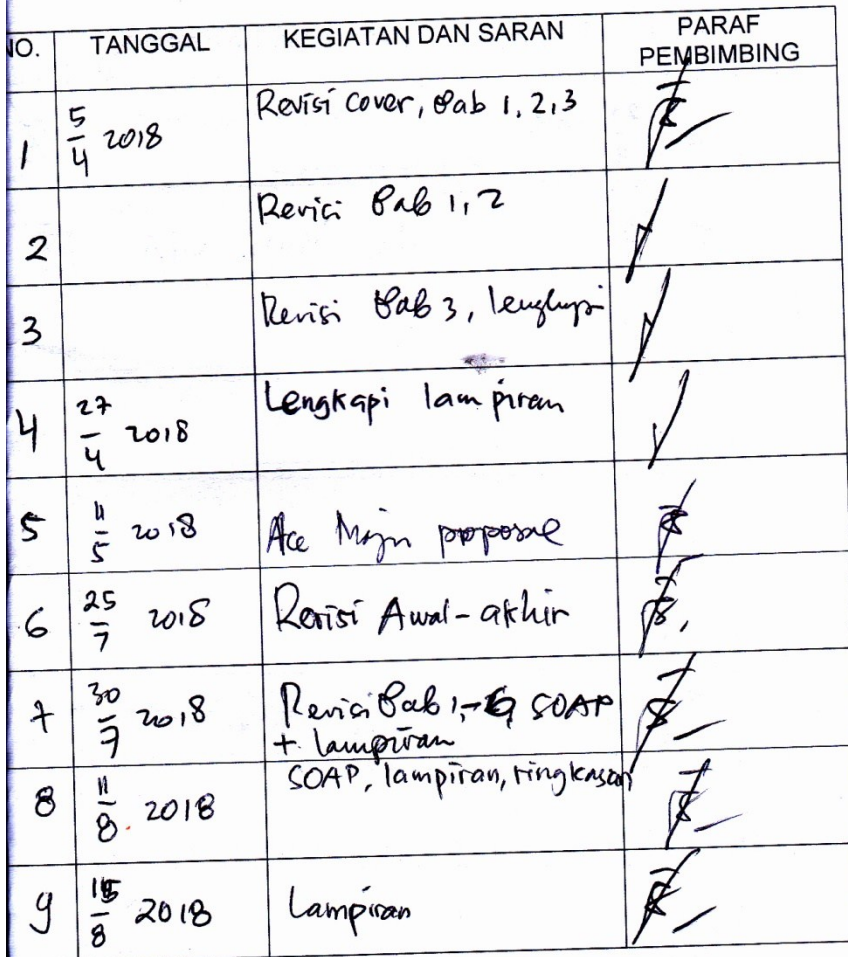 NO. TANGGAL KEGIATAN DAN SARAN PARAF
PEMBIMBING
1 5/4 2018 Revisi Cover, Bab 1, 2, 3
2 Revisi Bab 1, 2
3 Revisi Bab 3, lengkapi
4 27/4 2018 Lengkapi lampiran
5 11/5 2018 Acc Maju proposal
6 25/7 2018 Revisi Awal-akhir
7 30/7 2018 Revisi Bab 1,-6, SOAP
+ lampiran
8 11/8 2018 SOAP, lampiran, ringkasan
9 15/8 2018 Lampiran